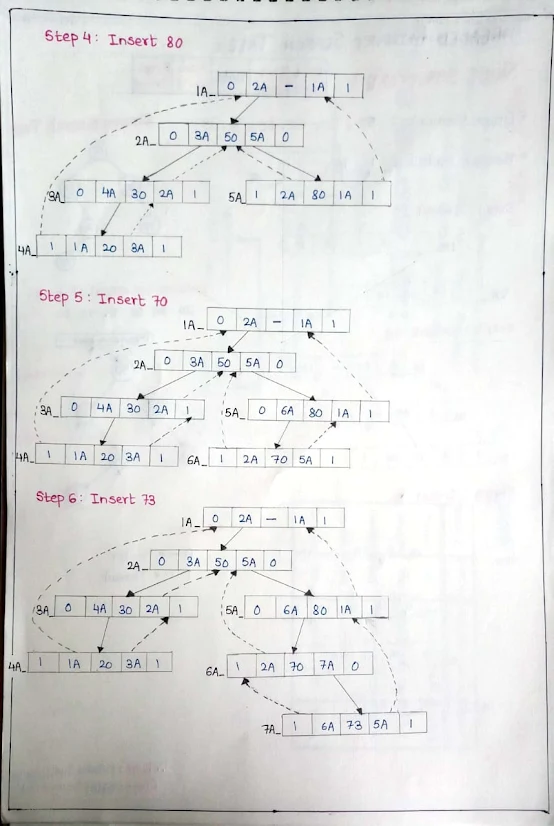 Step 4: Insert 80
1A_ 0 2A - 1A 1
2A_ 0 3A 50 5A 0
3A_ 0 4A 30 2A 1 5A_ 1 2A 80 1A 1
4A_ 1 1A 20 3A 1
Step 5: Insert 70
1A_ 0 2A - 1A 1
2A_ 0 3A 50 5A 0
3A_ 0 4A 30 2A 1 5A_ 0 6A 80 1A 1
4A_ 1 1A 20 3A 1 6A_ 1 2A 70 5A 1
Step 6: Insert 73
1A_ 0 2A - 1A 1
2A_ 0 3A 50 5A 0
3A_ 0 4A 30 2A 1 5A_ 0 6A 80 1A 1
4A_ 1 1A 20 3A 1 6A_ 1 2A 70 7A 0
7A_ 1 6A 73 5A 1